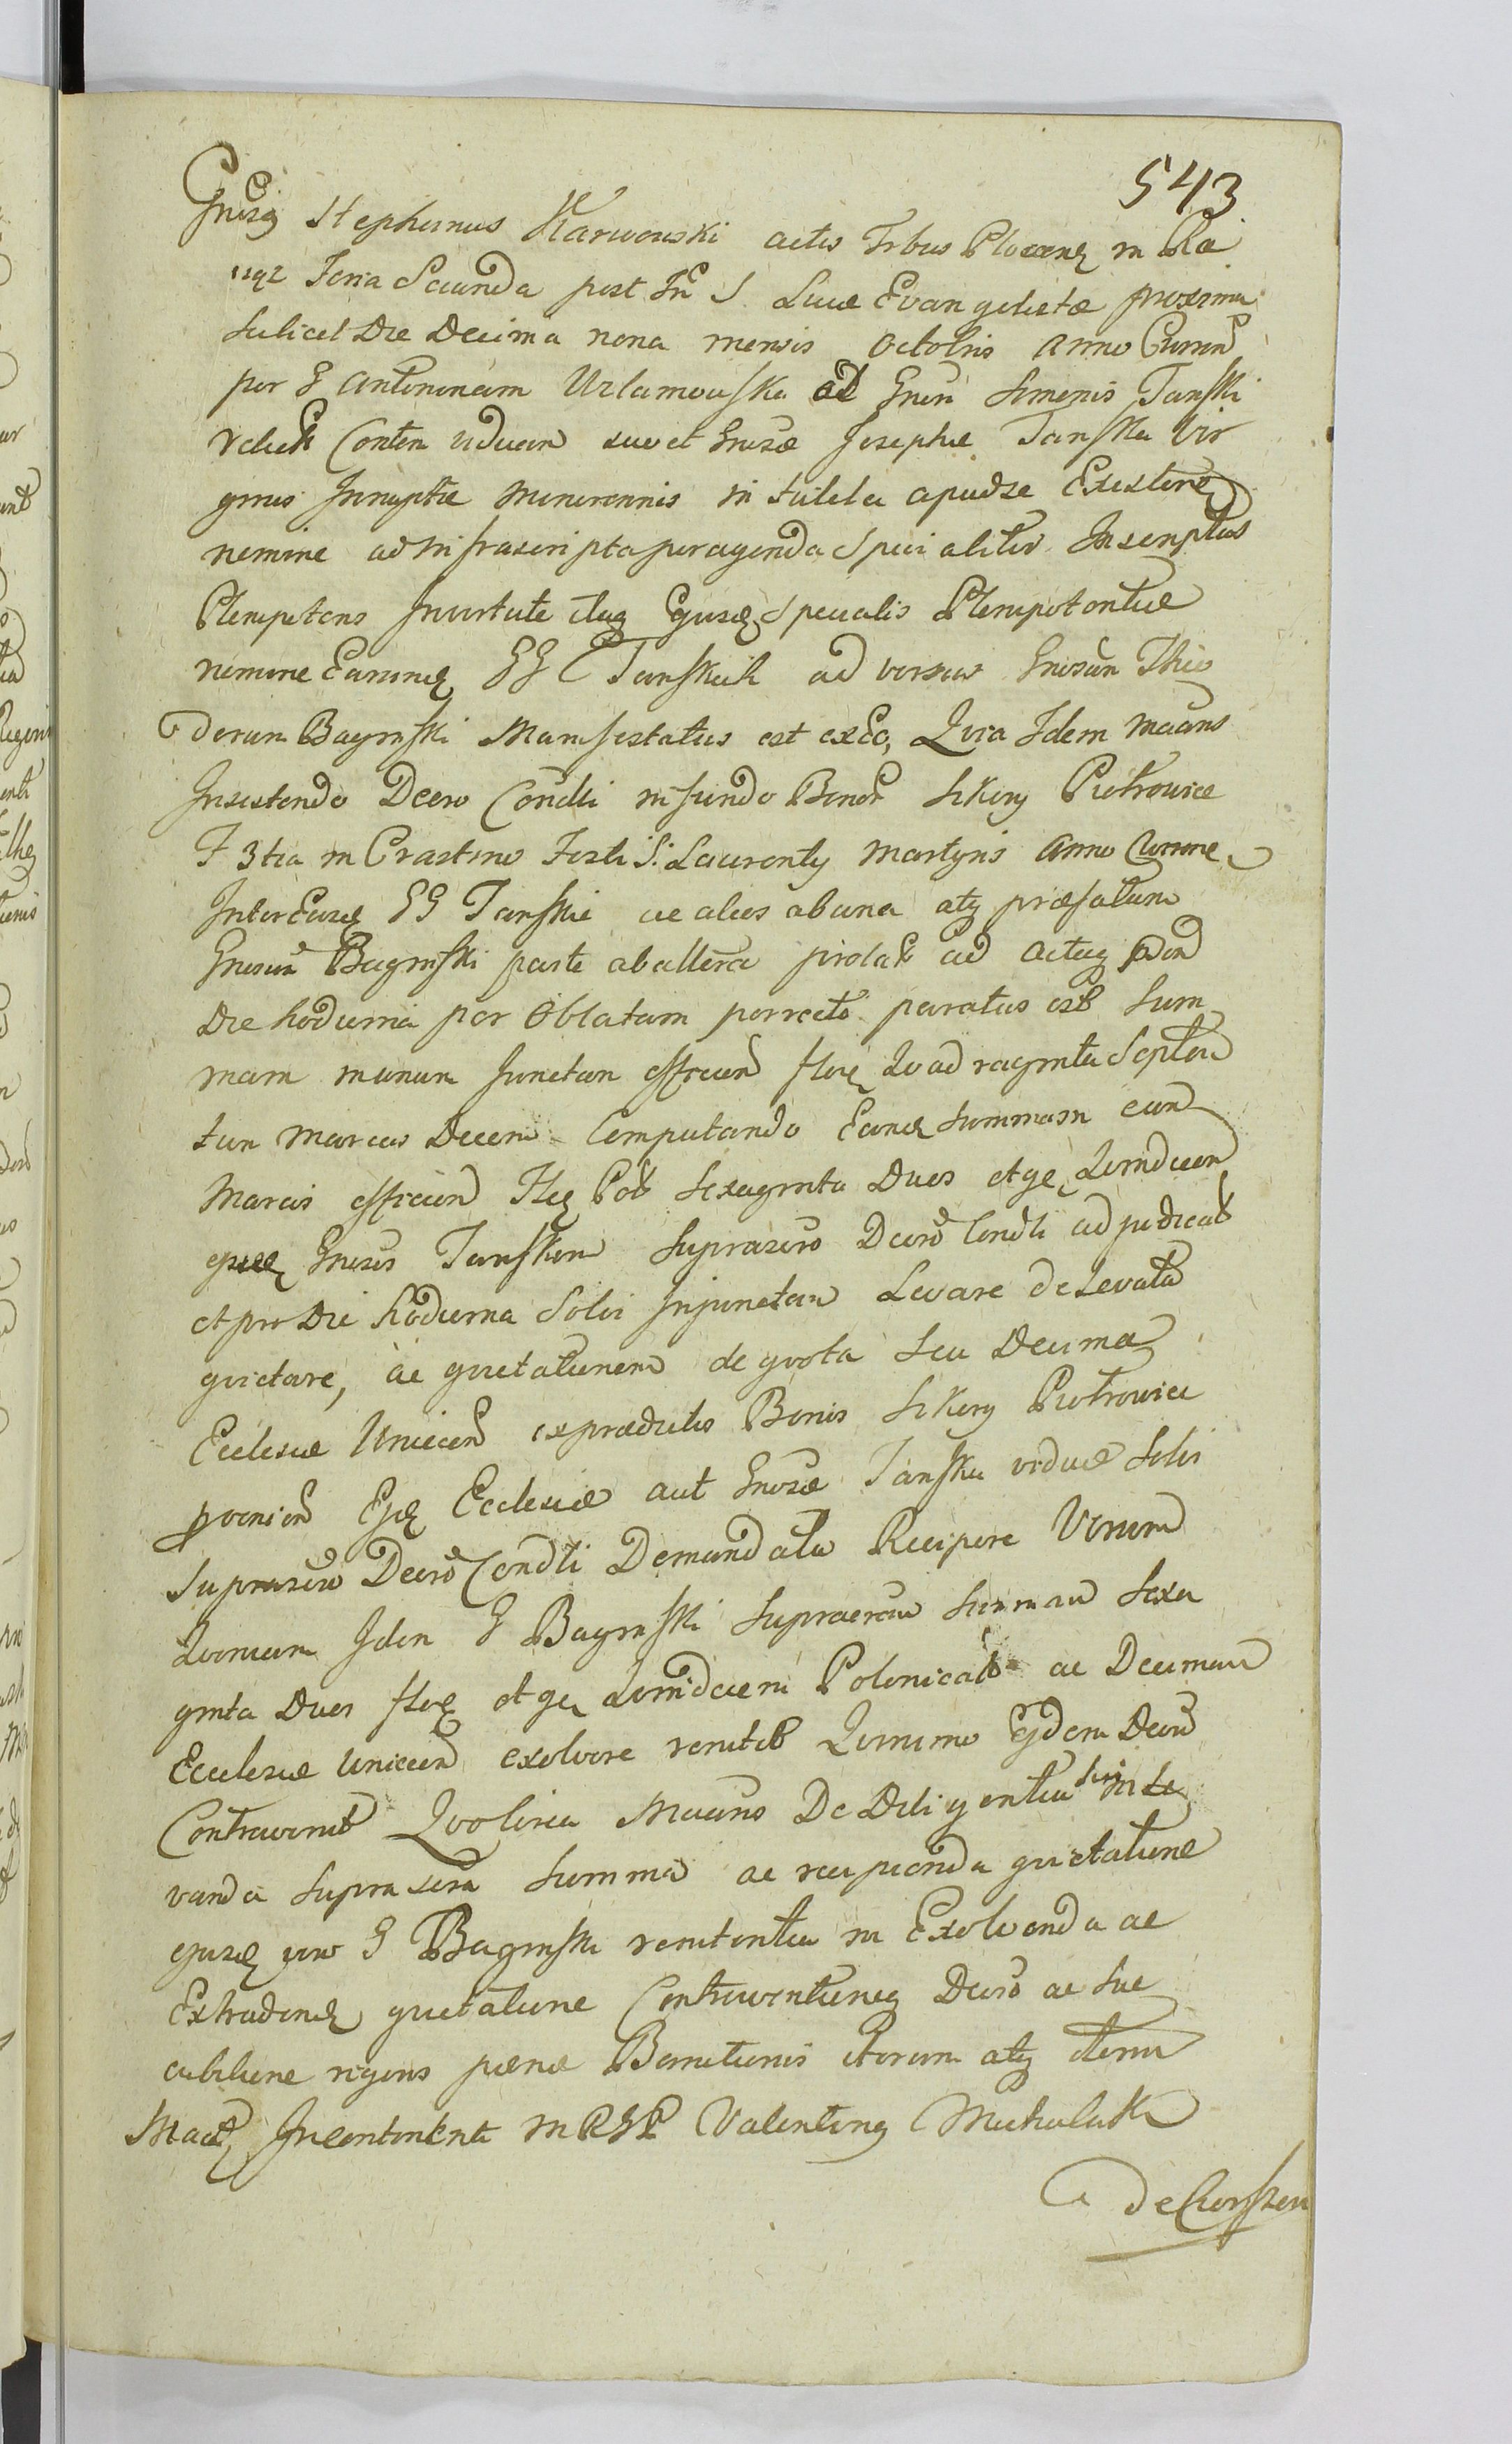 543
Gnosus Stephanus Karwowski actis Trbus Plocens in Ra
Feria Secunda post Fm S. Lucæ Evangelistæ proxima
scilicet Die Decima nona mensis Octobris Anno Curren
per G Antoninam Uzlamowska ad Gnosi Simonis Tanski
relict Conten viduam suo et Gnosæ Josephæ Tanska Vir
ginis Innuptæ minorennis in tutela apud se Existen
nomine ad infrascripta peragenda Specialiter Inscriptus
Plenipotens In virtute itaq Ejusd Specialis Plenipotentiæ
nomine Earund GG Tanskich adversus Gnosum Theo
dorum Baginski Manifestatus est exEo, Qvia Idem Maans
Insistendo Decro Condli in fundo Bonor Sikory Piotrowice
F 3tia in Crastino Festi S. Laurentij Martyris Anno Curren
Inter Easd GG Tanskie ac alios ab una atq præfatum
Gnosum Baginski parte ab altera prolat ad Acta pdon
Die hodierna per Oblatam porrecto paratus est Sum
mam manum Junctam efficien flor Quadraginta Septem
tum marcas Decem Computando Eand summam cum
Marcis efficien Flor Pol Sexaginta Duos et gr Quindecem
Gnosis Tanskim suprascro Decro Condli adjudicat
et pro Die hodierna Solvi Injunctam Levare de Levata
quictare, ac quietationem de qvota seu Decima
Ecclesiæ Uniecen ex prædictis Bonis Sikory Piotrowice
provenien Ejusd Ecclesiæ aut Gnosæ Tanska viduæ Solvi
suprascro Decro Condli Demandata Recipere Verum
Qvoniam Idem G Baginski supraexam summam Sexa
ginta Duos flor et gr Quindecem Polonicat ac Decimam
Ecclesiæ Uniecen exolvere renitet Qvinimo Ejdem Decro
Contravenit Qvolirca Maans De Diligentia sui in Le
vanda suprascra Summa ac recipienda quietatione
ejusd vero G Baginski renitentia in Exolvenda ac
Extraden quietatione Contraventioneq Decro ac suc
cubitione rigens pænæ Bannitionis iterum atq iterum
Maat Incontinenti MRSP Valentinus Michalski